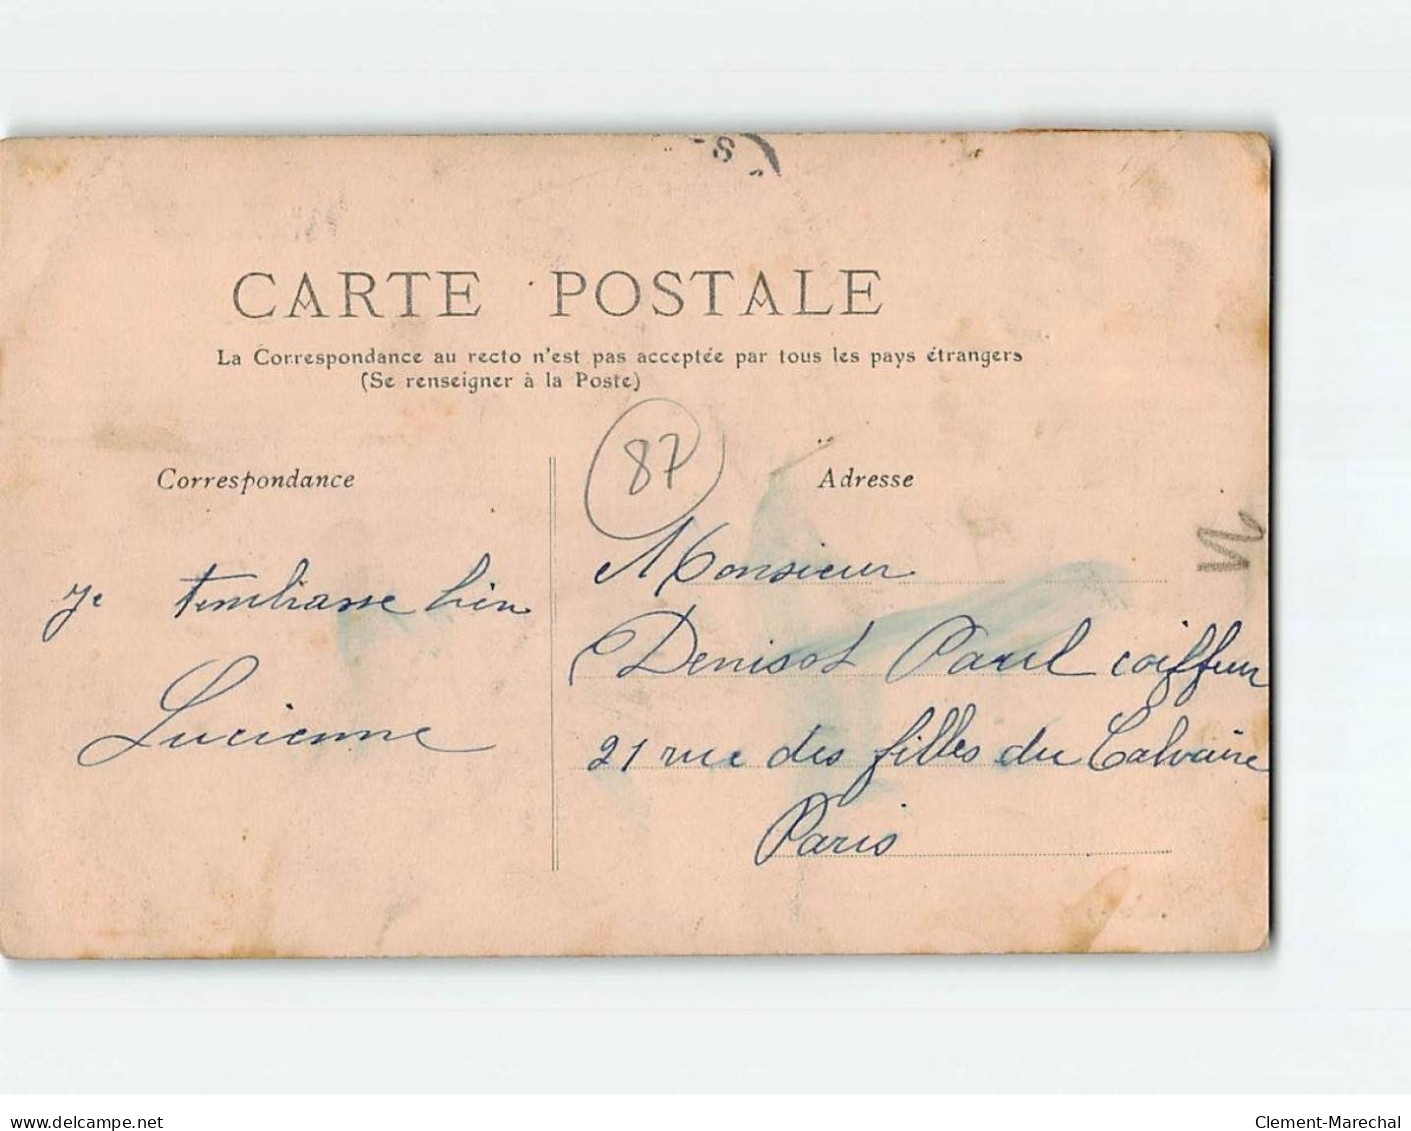 S
CARTE POSTALE
La Correspondance au recto n'est pas acceptée par tous les pays étrangers
(Se renseigner à la Poste)
87
Correspondance
Je t'embrasse bien
Lucienne
Adresse
Monsieur
Denisot Paul coiffeur
21 rue des filles du Calvaire
Paris
delcampe.net
Clement-Marechal